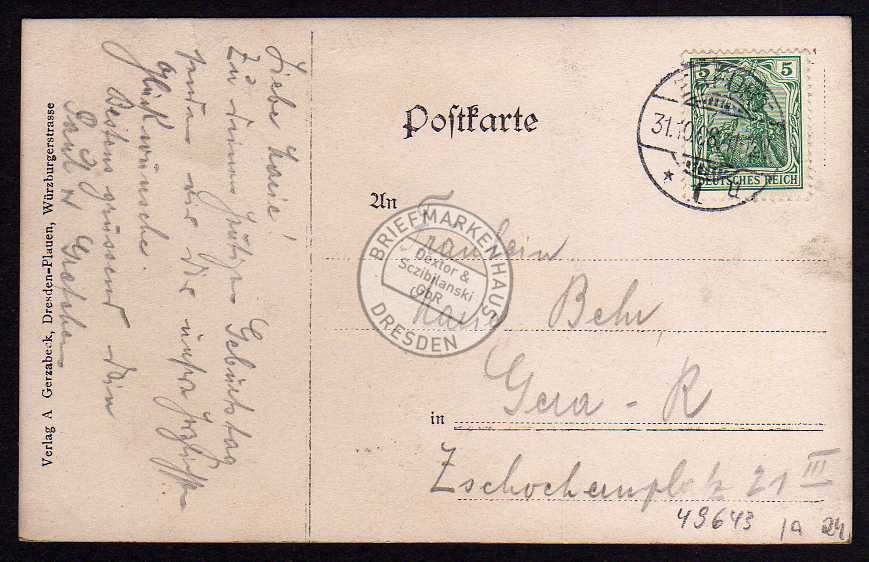 Postkarte
5 5
DEUTSCHES REICH
31.10.08.
An
Fräulein
Marie Behr
in Gera - R
Zschochernplatz 21 III
49643 1a 24
Liebe Marie!
Zu Deinem heutigen Geburtstag
senden wir Dir unsere herzlichsten
Glückwünsche.
Bestens grüssend Dein
Paul u Gretchen
Verlag A Gerzabeck, Dresden-Plauen, Würzburgerstrasse
BRIEFMARKENHAUS
Dextor &
Sczibilanski
GbR
DRESDEN